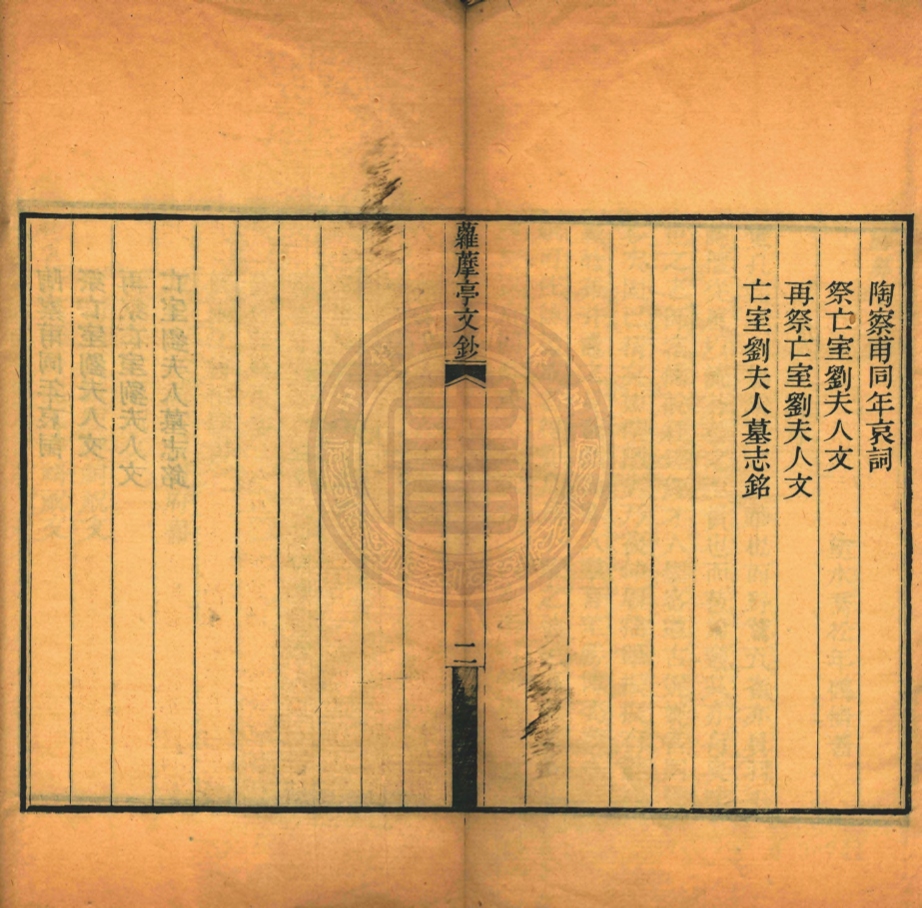 陶察甫同年哀詞
祭亡室劉夫人文
再祭亡室劉夫人文
亡室劉夫人墓志銘
蘿藦亭文鈔
二